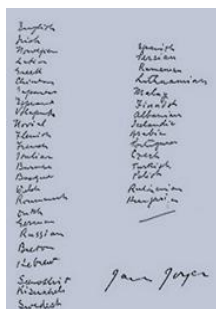 English
Irish
Norwegian
Latin
Greek
Chinese
Japanese
Esperanto
Volapuk
Novial
Flemish
French
Italian
Burmese
Basque
Welsh
Roumansh
Dutch
German
Russian
Breton
Hebrew
Sanskrit
Swedish
Spanish
Persian
Lithuanian
Malay
Finnish
Albanian
Icelandic
Arabic
Portuguese
Czech
Turkish
Polish
Ruthenian
Hungarian